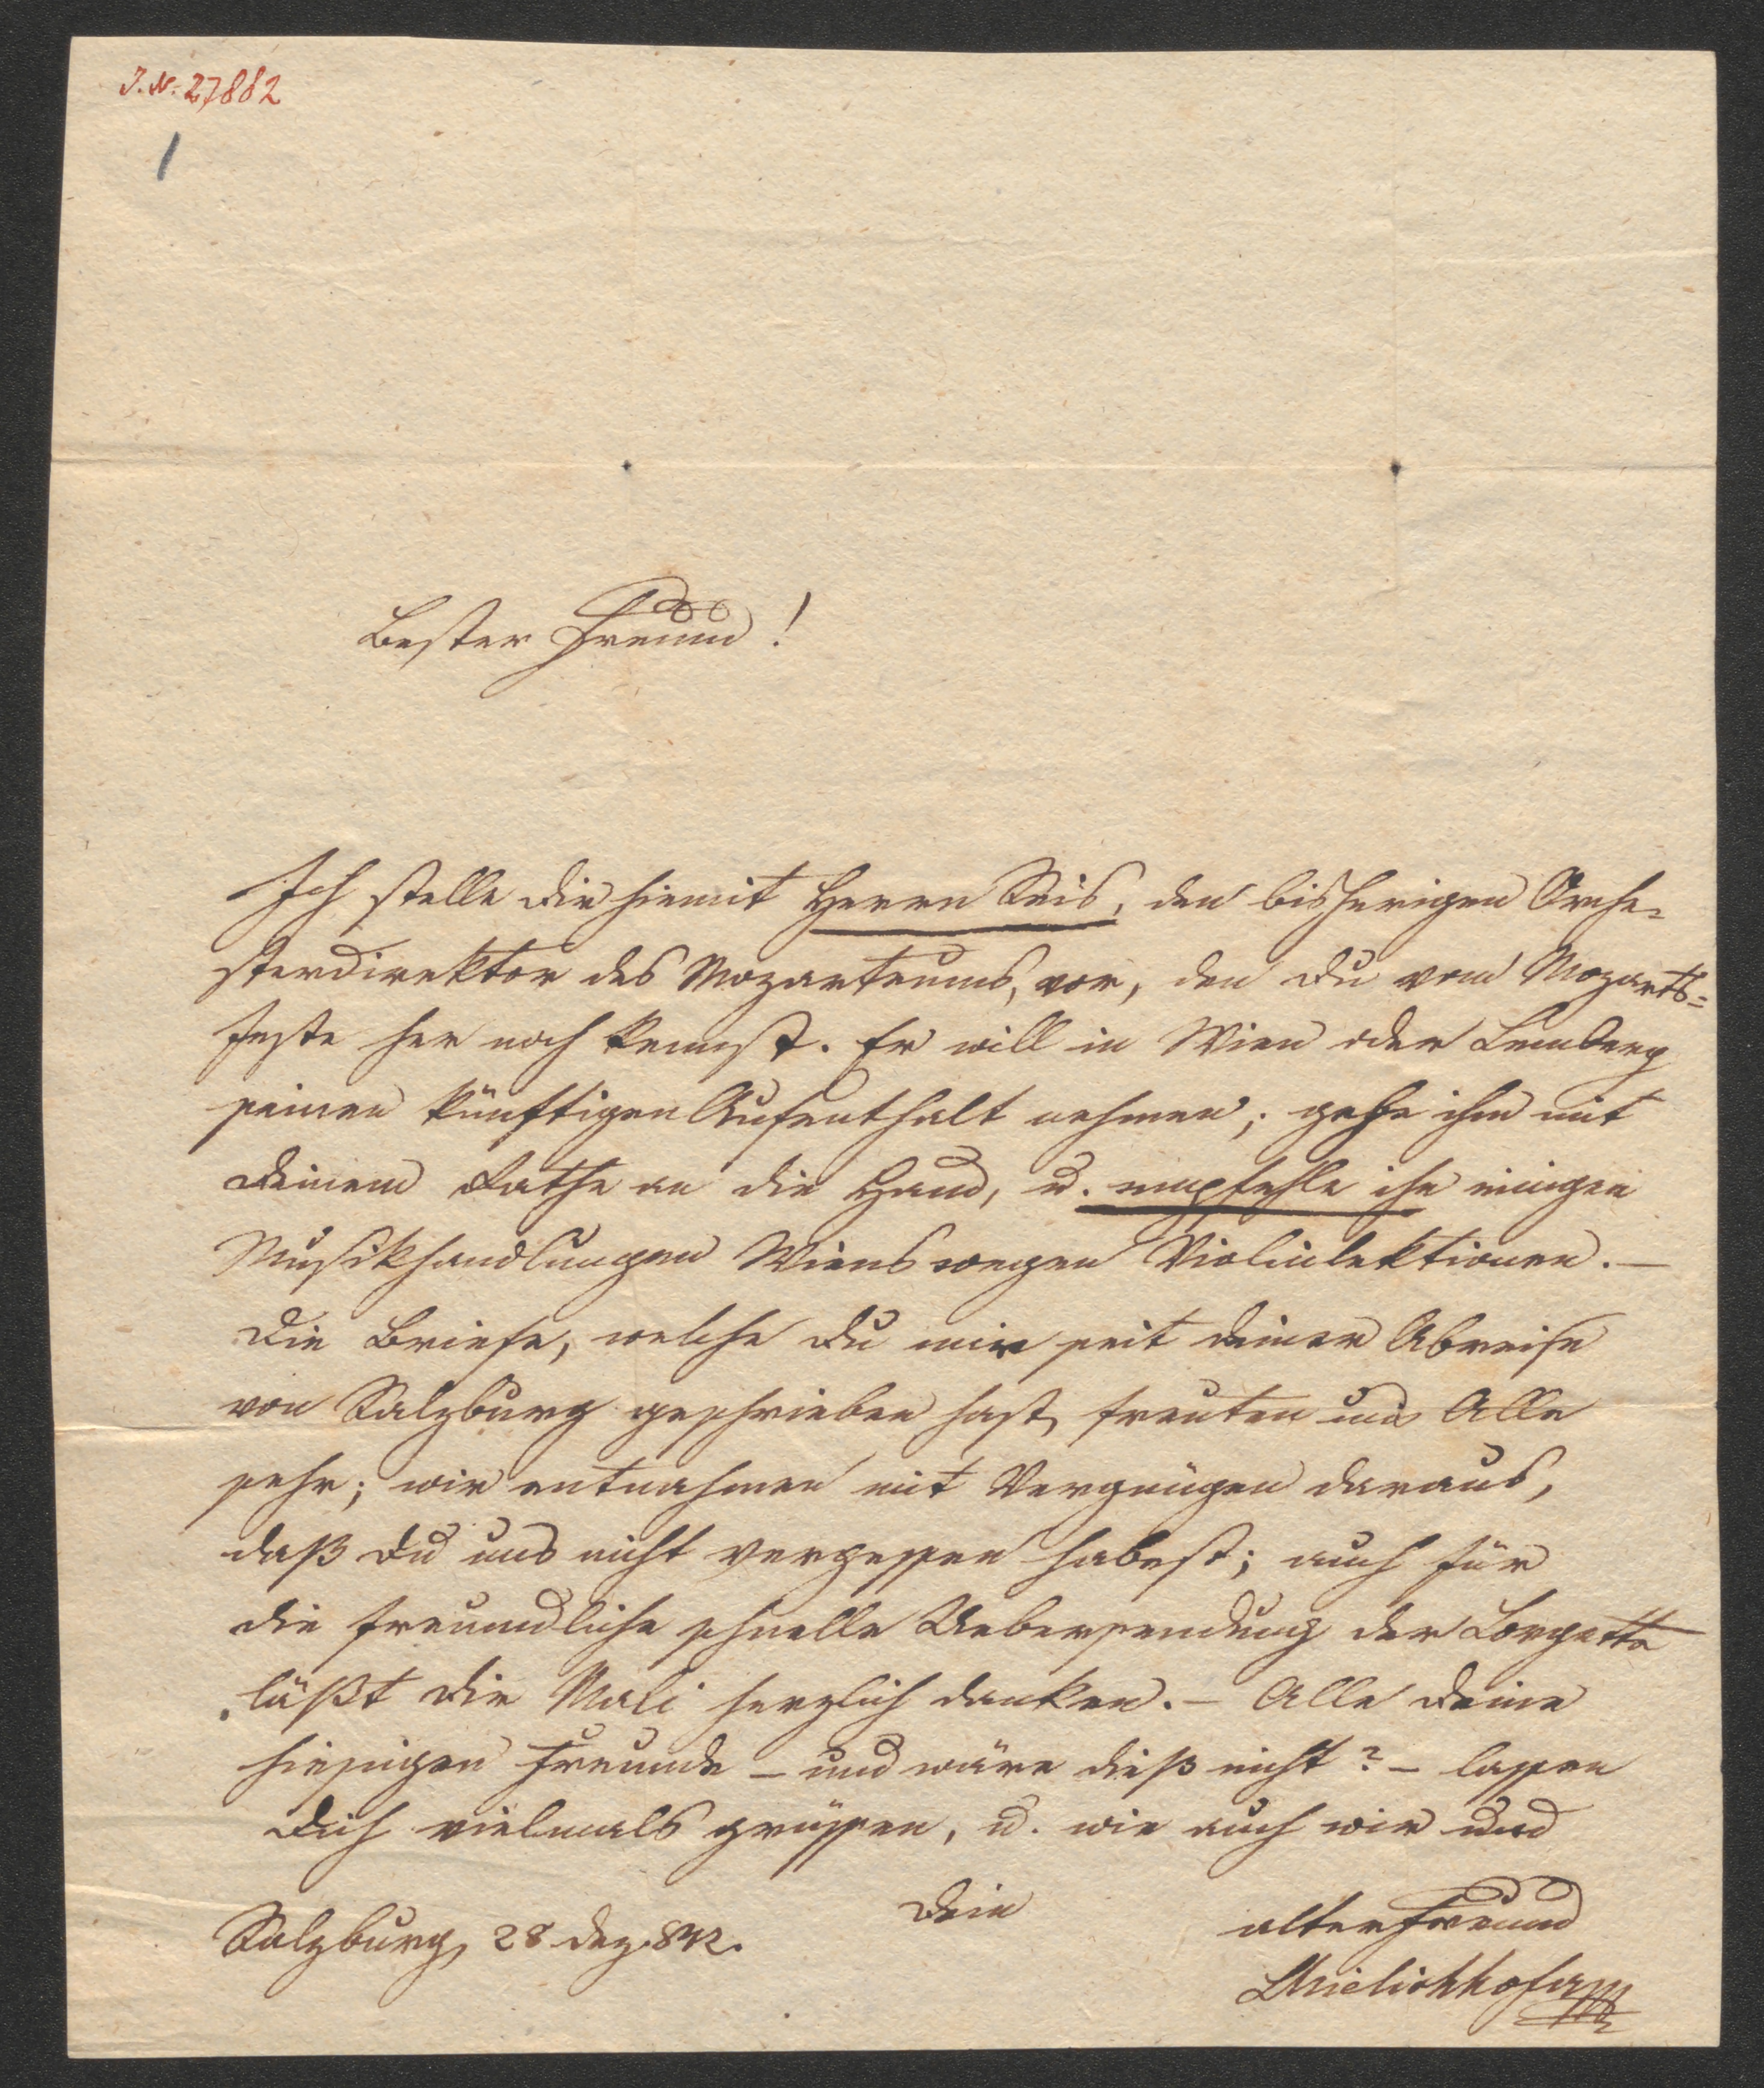 J. N. 27882
1
Bester Freund!
Ich stelle dir hiemit Herrn Reis, den bisherigen Orche-
sterdirektor des Mozarteums, vor, den du vom Mozarts-
feste her noch kennst. Er will in Wien oder Lemberg
seinen künftigen Aufenthalt nehmen; gehe ihm mit
deinem Rathe an die Hand, u. empfehle ihn einigen
Musikhandlungen Wiens wegen Violinlektionen. –
Die Briefe, welche du mir seit deiner Abreise
von Salzburg geschrieben hast, freuten uns Alle
sehr; wir entnahmen mit Vergnügen daraus,
daß du uns nicht vergessen habest; auch für
die freundliche schnelle Uebersendung der Lorgette
läßt die Mali herzlich danken. – Alle deine
hiesigen Freunde – und wäre dieß nicht? – lassen
dich vielmals grüssen, u. wie auch wir und
Dein
alter Freund
Salzburg, 28 Dez. 842.
LMielichhofer